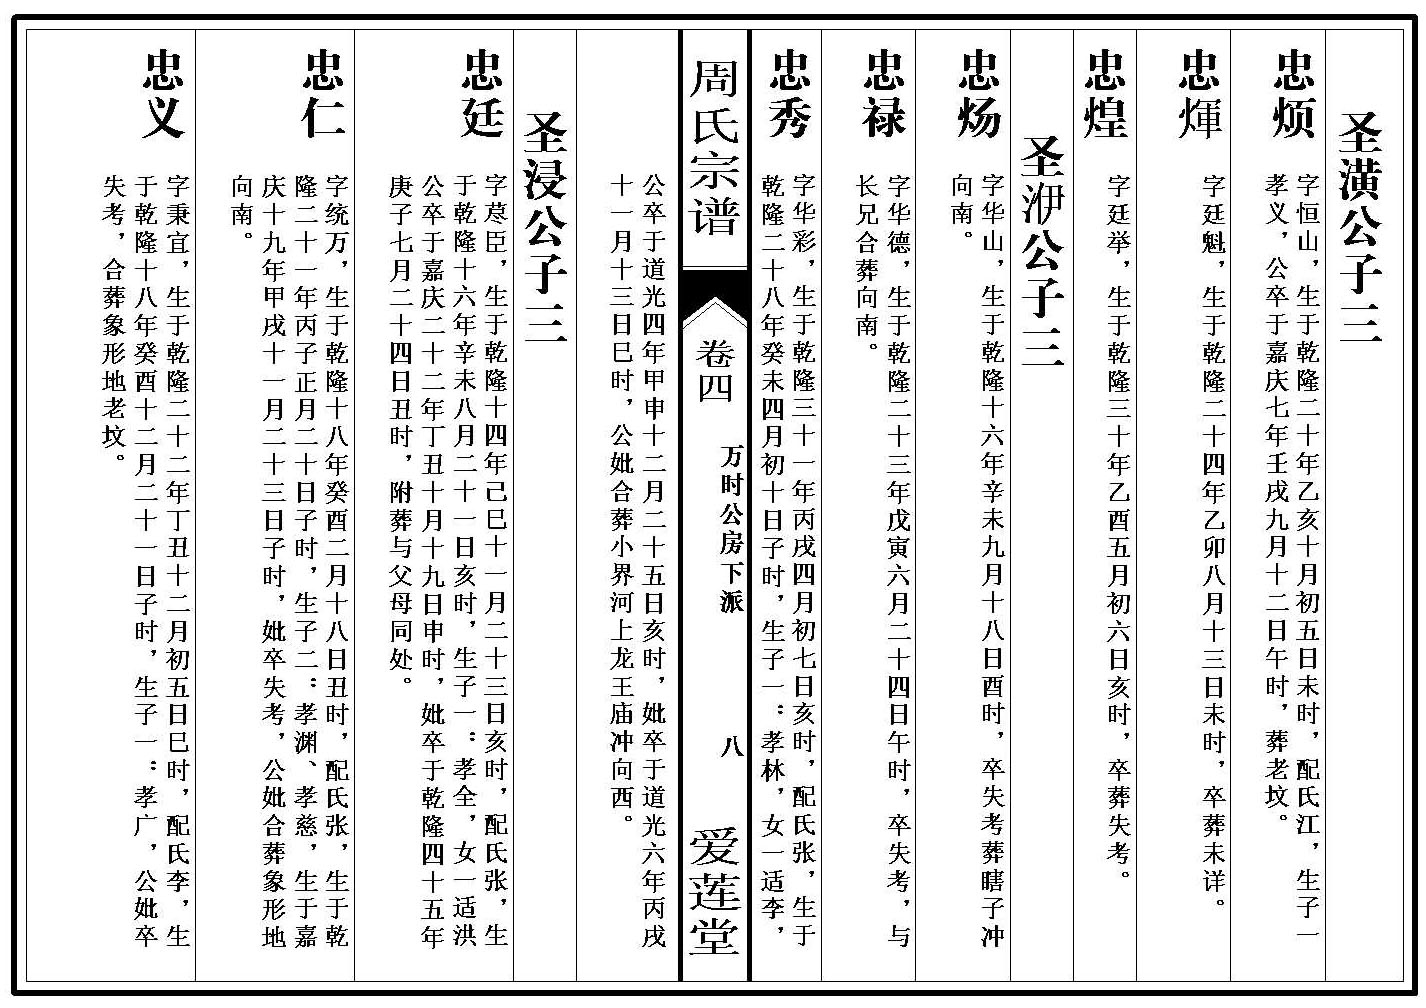 圣潢公子三
忠烦
字恒山，生于乾隆二十年乙亥十月初五日未时，配氏江，生子一
孝义，公卒于嘉庆七年壬戌九月十二日午时，葬老坟。
忠煇
字廷魁，生于乾隆二十四年乙卯八月十三日未时，卒葬未详。
忠煌
字廷举，生于乾隆三十年乙酉五月初六日亥时，卒葬失考。
圣洢公子三
忠炀
字华山，生于乾隆十六年辛未九月十八日酉时，卒失考葬瞎子冲
向南。
忠禄
字华德，生于乾隆二十三年戊寅六月二十四日午时，卒失考，与
长兄合葬向南。
忠秀
字华彩，生于乾隆三十一年丙戌四月初七日亥时，配氏张，生于
乾隆二十八年癸未四月初十日子时，生子一：孝林，女一适李，
周氏宗谱
卷四
万时公房下派
八
爱莲堂
公卒于道光四年甲申十二月二十五日亥时，妣卒于道光六年丙戌
十一月十三日巳时，公妣合葬小界河上龙王庙冲向西。
圣浸公子三
忠廷
字荩臣，生于乾隆十四年己巳十一月二十三日亥时，配氏张，生
于乾隆十六年辛未八月二十一日亥时，生子一：孝全，女一适洪
公卒于嘉庆二十二年丁丑十月十九日申时，妣卒于乾隆四十五年
庚子七月二十四日丑时，附葬与父母同处。
忠仁
字统万，生于乾隆十八年癸酉二月十八日丑时，配氏张，生于乾
隆二十一年丙子正月二十日子时，生子二：孝渊、孝慈，生于嘉
庆十九年甲戌十一月二十三日子时，妣卒失考，公妣合葬象形地
向南。
忠义
字秉宜，生于乾隆二十二年丁丑十二月初五日巳时，配氏李，生
于乾隆十八年癸酉十二月二十一日子时，生子一：孝广，公妣卒
失考，合葬象形地老坟。